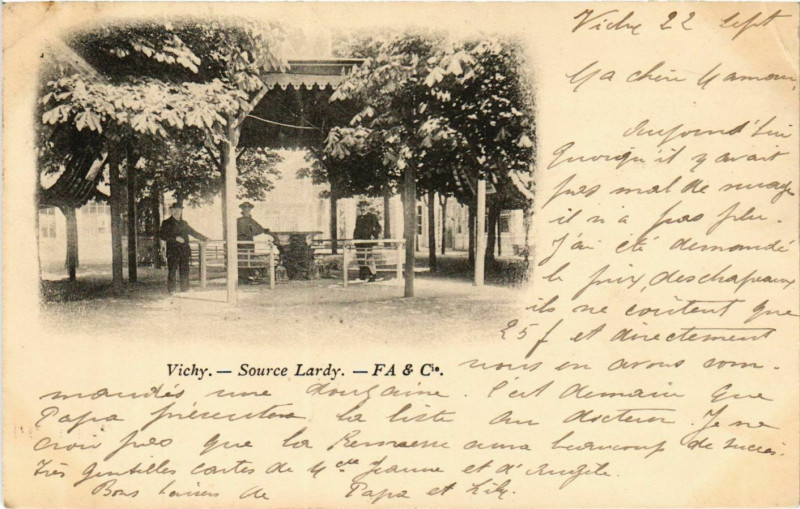 Vichy 22 Sept
Ma chère Maman,
Aujourd'hui
quoiqu'il y avait
pas mal de nuage
il n'a pas plu.
J'ai été demandé
le prix des chapeaux
ils ne coutent que
25 f et directement
Vichy. — Source Lardy. — FA & Cie.
nous en avons com-
mandés une douzaine. C'est demain que
Papa présentera la liste au docteur. Je ne
crois pas que la aura beaucoup de succès.
Très gentilles cartes de Mlle Jeanne et d'Angèle.
Bons baisers de Papa et Lily.